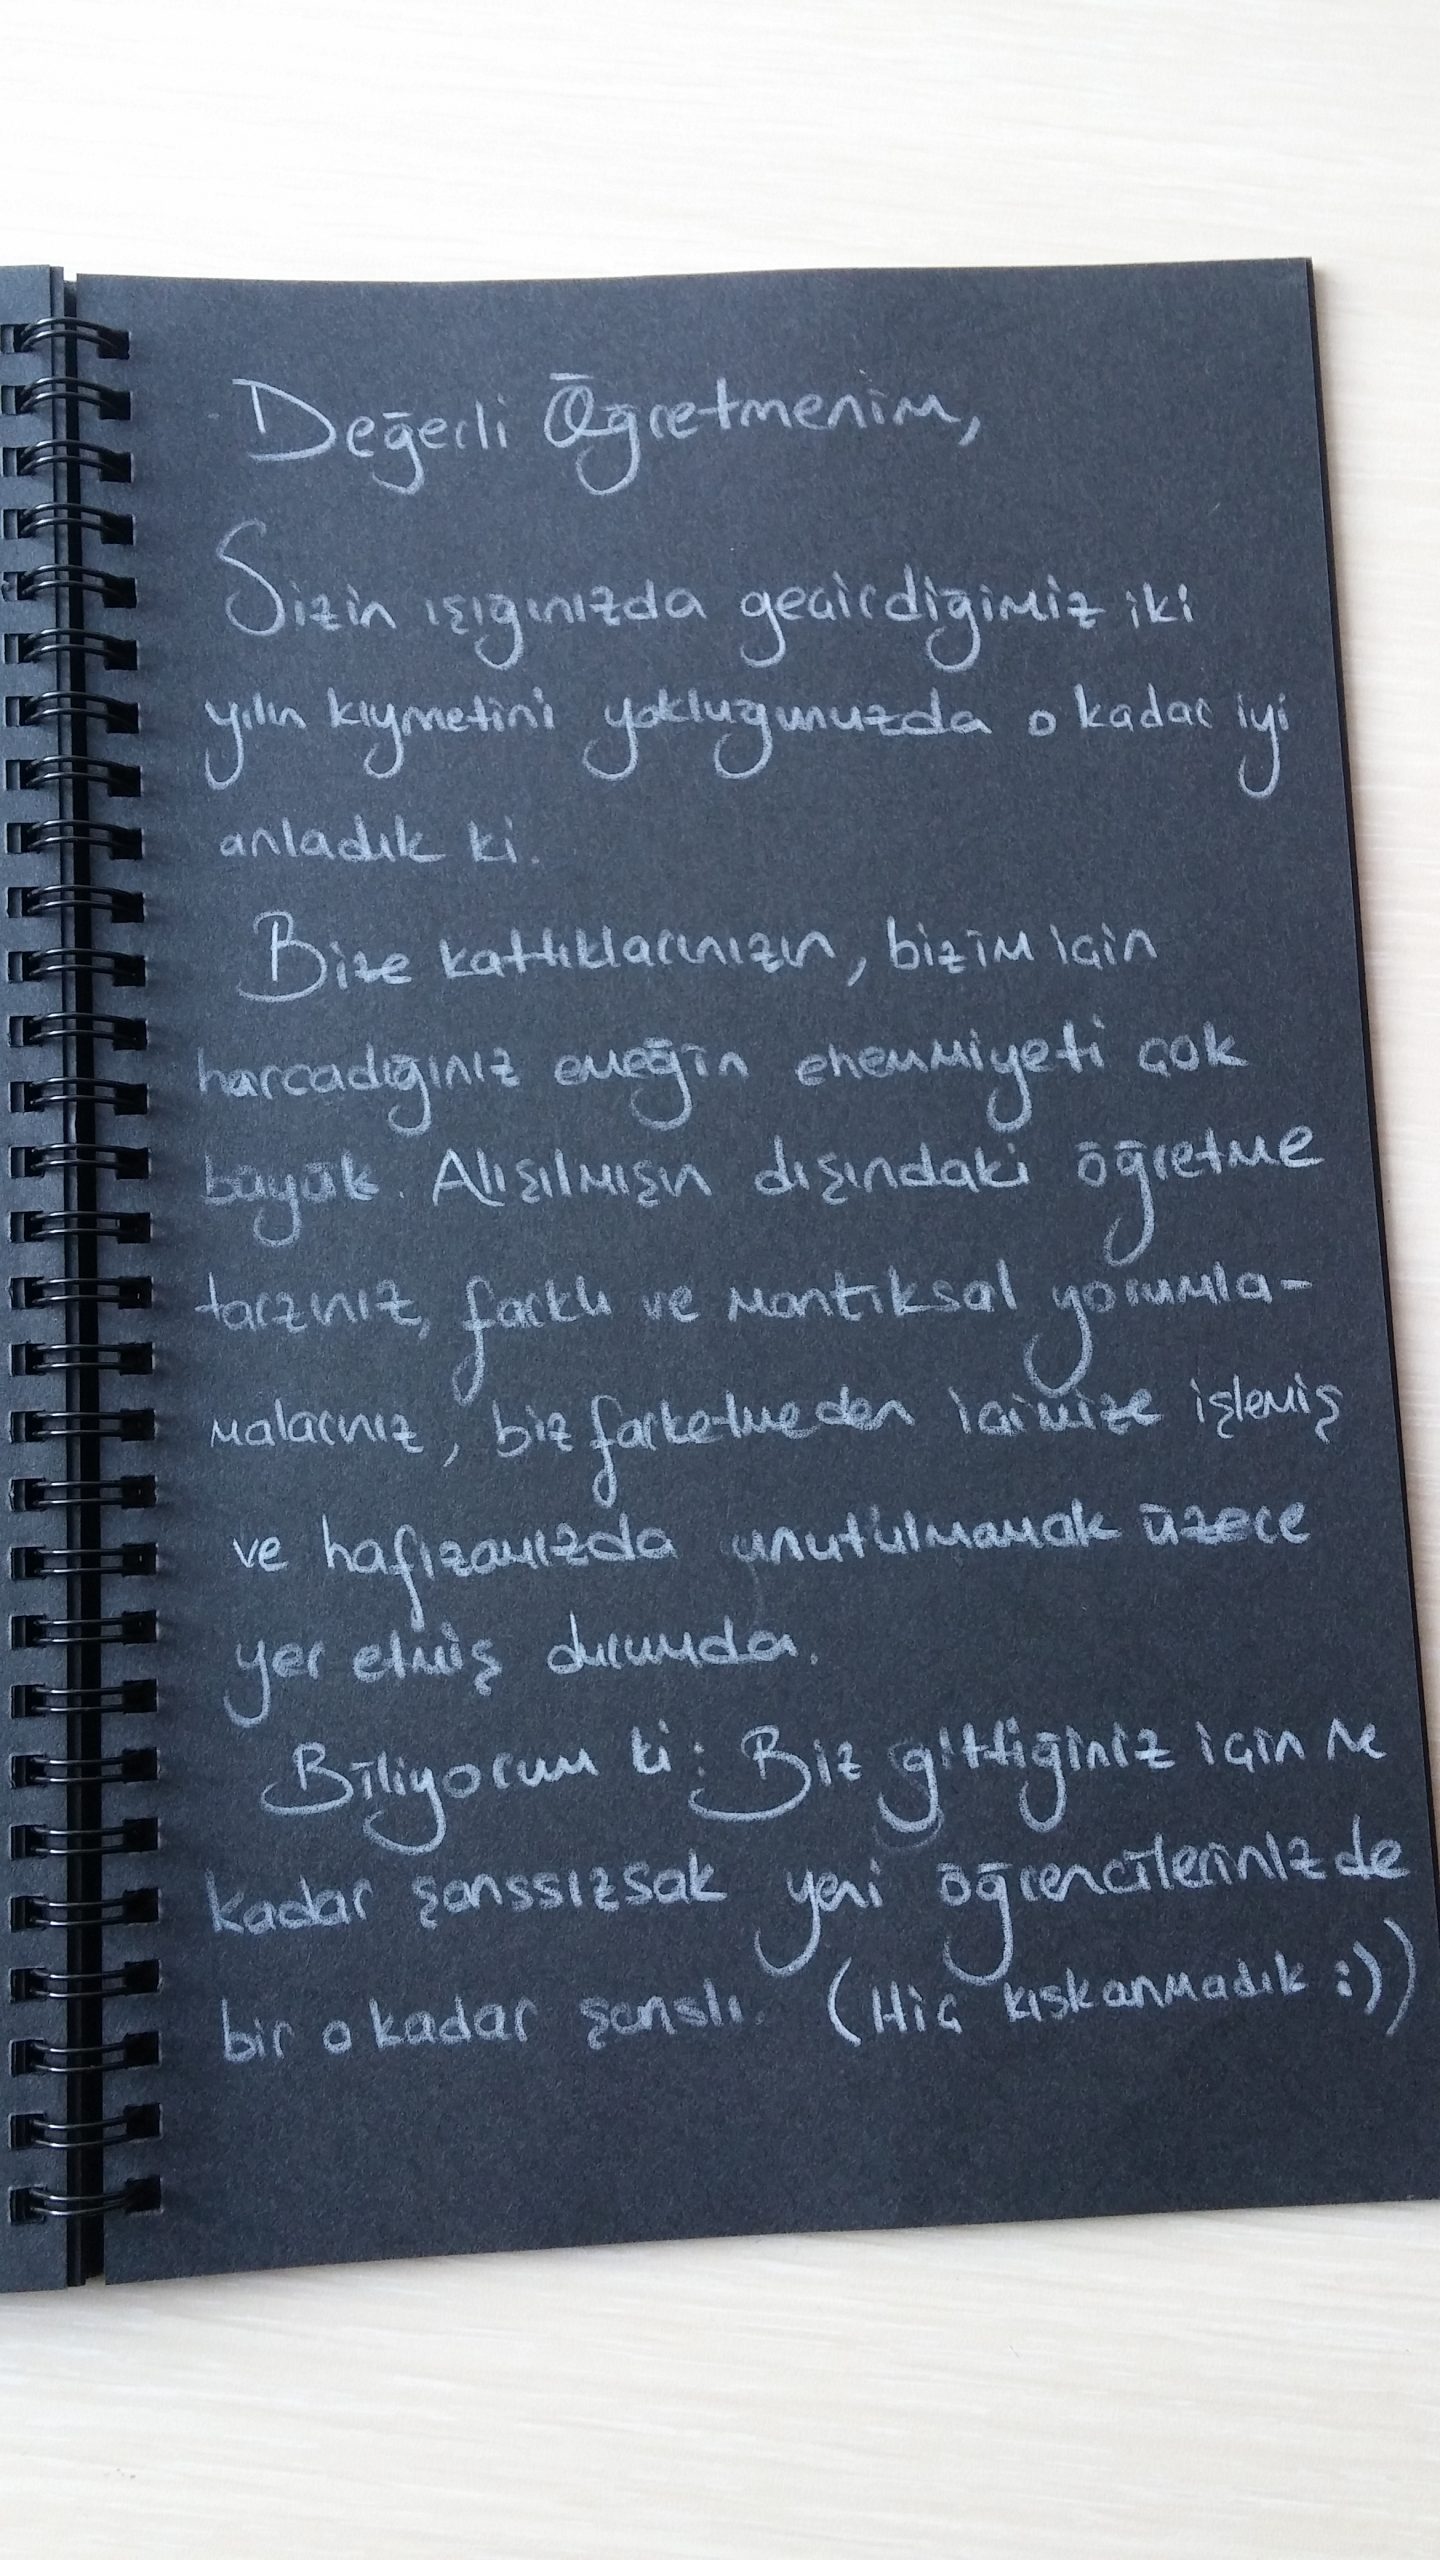 Değerli Öğretmenim,
Sizin ışığınızda geçirdiğimiz iki
yılın kıymetini yokluğunuzda o kadar iyi
anladık ki.
Bize kattıklarınızın, bizim için
harcadığınız emeğin ehemmiyeti çok
büyük. Alışılmışın dışındaki öğretme
tarzınız, farklı ve mantıksal yorumla-
malarınız, biz farketmeden içimize işlemiş
ve hafızamızda unutulmamak üzere
yer etmiş durumda.
Biliyorum ki: Biz gittiğiniz için ne
kadar şanssızsak yeni öğrencileriniz de
bir o kadar şanslı. (Hiç kıskanmadık :))